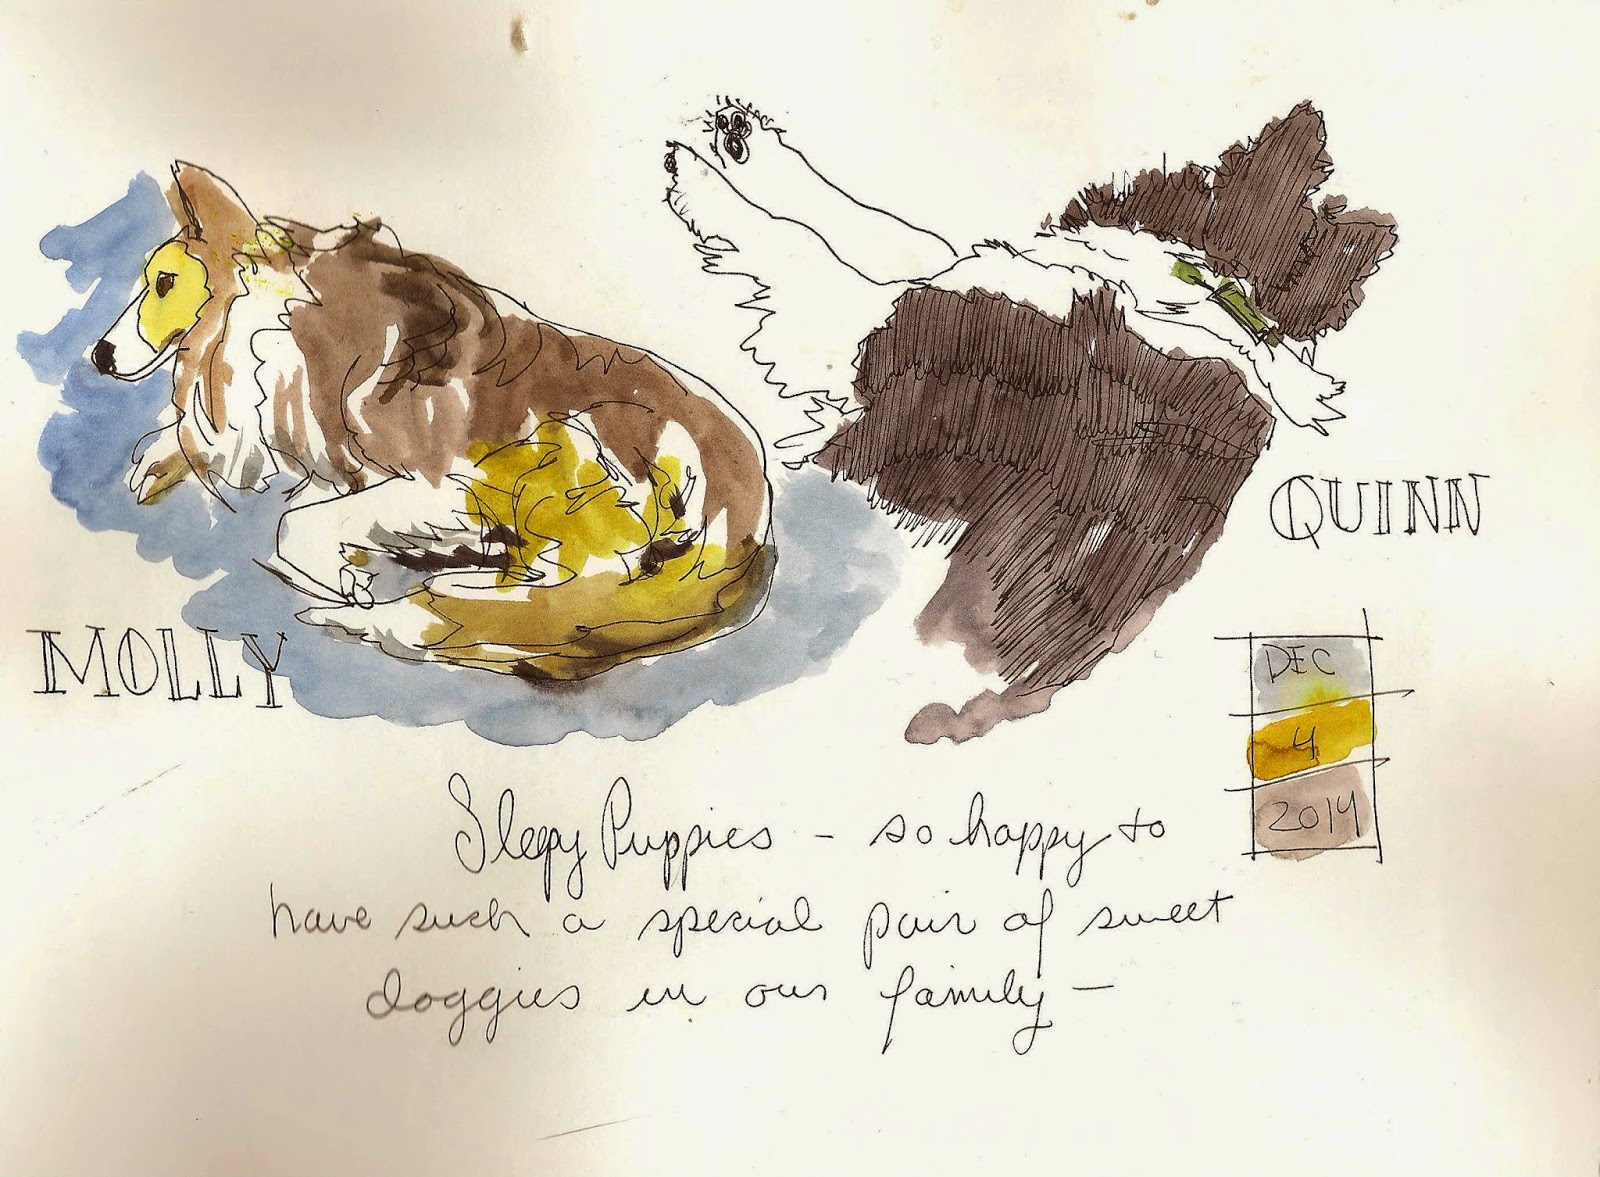 QUINN
MOLLY
DEC
4
2014
Sleepy Puppies – so happy to
have such a special pair of sweet
doggies in our family –